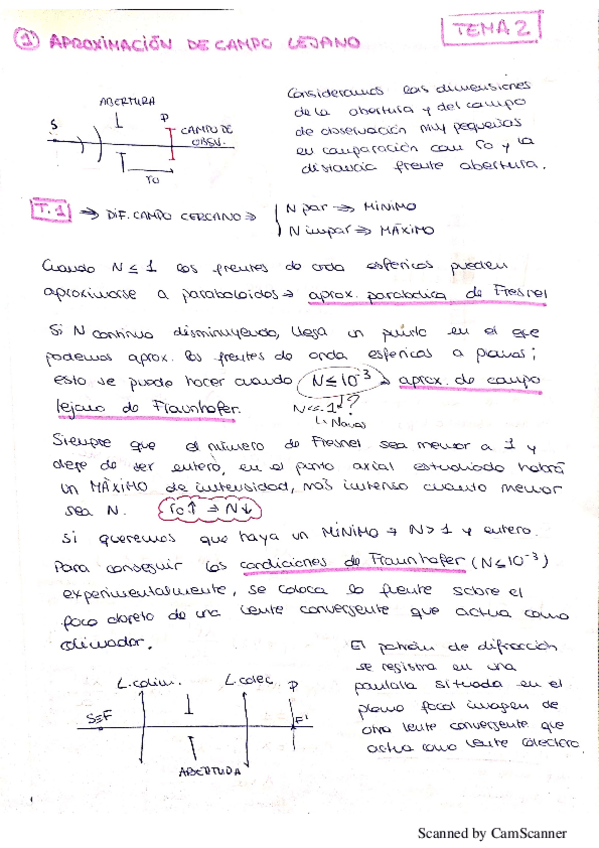 TEMA 2
① APROXIMACIÓN DE CAMPO LEJANO
ABERTURA
S
P
CAMPO DE
OBSV.
ro
Consideramos las dimensiones
de la abertura y del campo
de observación muy pequeñas
en comparación con ro y la
distancia frente abertura.
T.1 → DIF. CAMPO CERCANO ⇒ N par ⇒ MÍNIMO
N impar ⇒ MÁXIMO
Cuando N ≤ 1 los frentes de onda esféricos pueden
aproximarse a paraboloides → aprox. parabólica de Fresnel
Si N continua disminuyendo, llega un punto en el que
podemos aprox. los frentes de onda esféricos a planos;
esto se puede hacer cuando N ≤ 10⁻³ → aprox. de campo
lejano de Fraunhofer.
N << 1 ?
↳ Navas
Siempre que el número de Fresnel sea menor a 1 y
deje de ser entero, en el punto axial estudiado habrá
un MÁXIMO de intensidad, más intenso cuanto menor
sea N. ro↑ ⇒ N↓
Si queremos que haya un MÍNIMO → N > 1 y entero.
Para conseguir las condiciones de Fraunhofer (N ≤ 10⁻³)
experimentalmente, se coloca la fuente sobre el
foco objeto de una lente convergente que actua como
colimador.
L. colim.
L. colec.
P
S≡F
F'
ABERTURA
El patrón de difracción
se registra en una
pantalla situada en el
plano focal imagen de
otra lente convergente que
actúa como lente colectora
Scanned by CamScanner